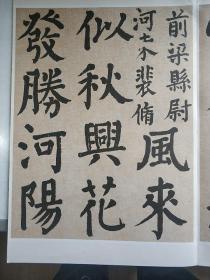 前梁縣尉
河東裴脩
風來
似秋興花
發勝河陽